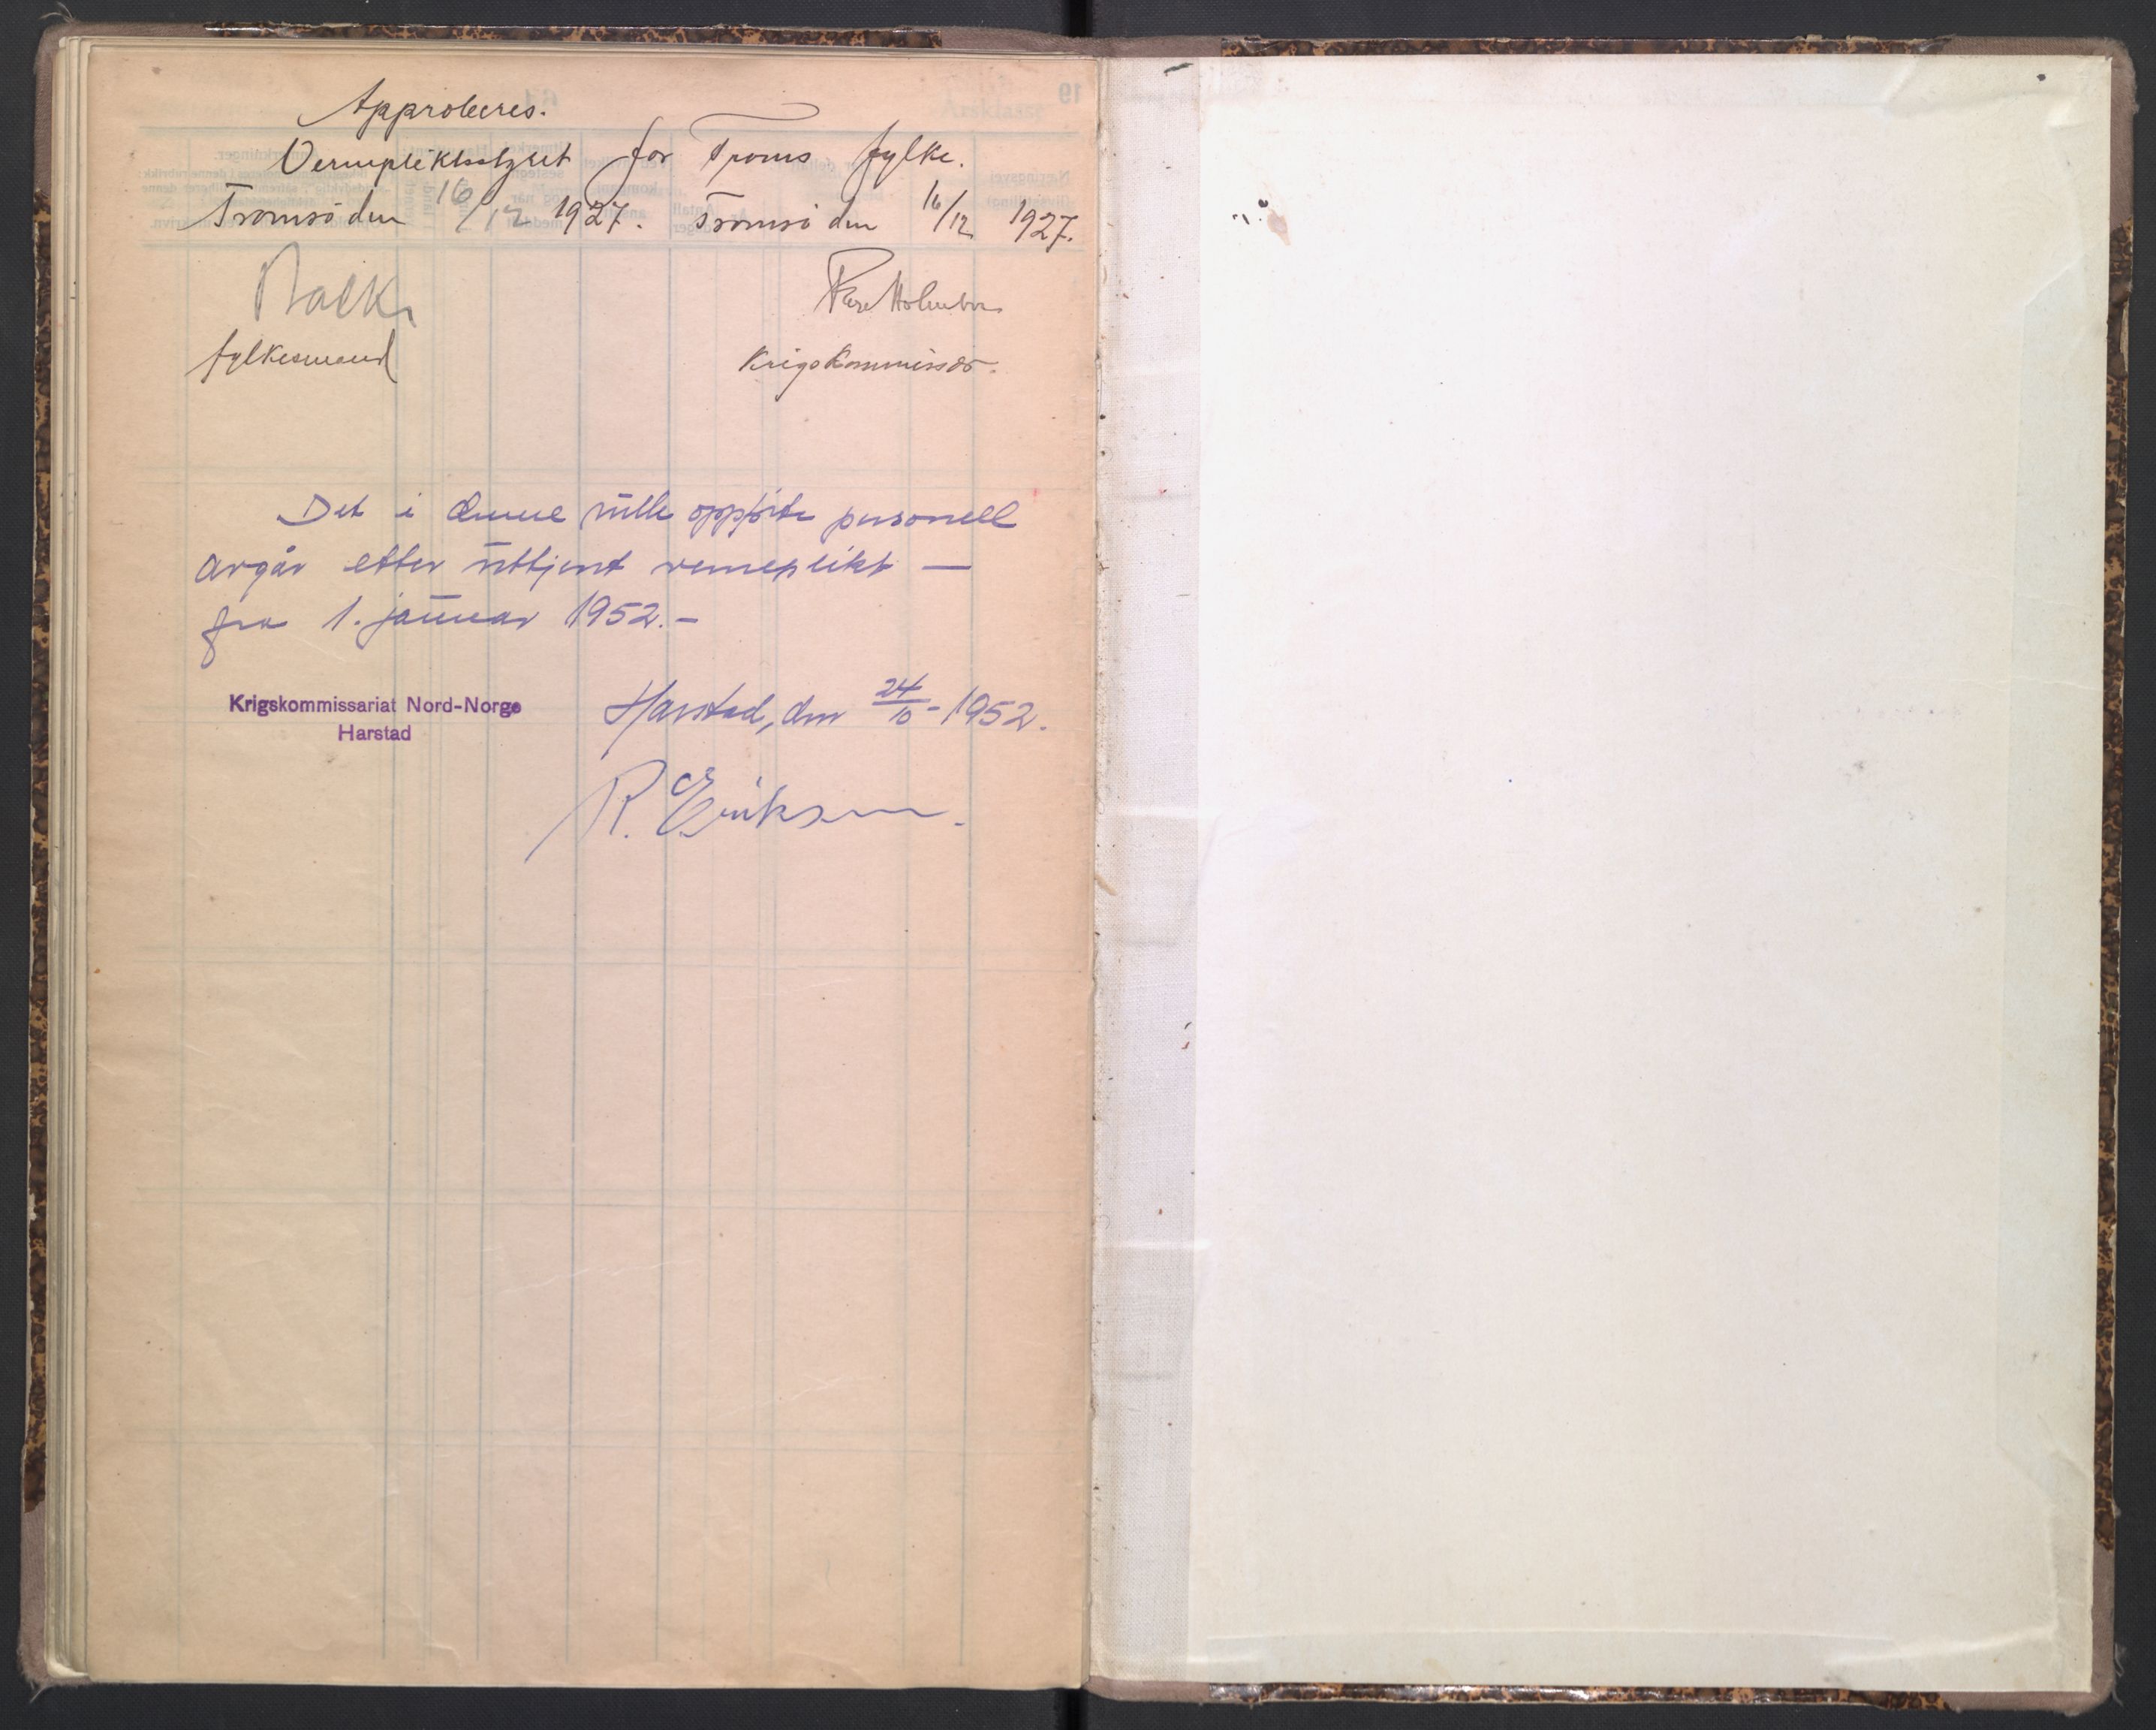 Approberes.
Vernepliktsstyret for Troms fylke.
Tromsö den 16/12 1927. Tromsö den 16/12 1927.
fylkesmand
Krigskommissær.
Det i denne rulle oppförte personell
avgår etter uttjent verneplikt —
fra 1. januar 1952.-
Krigskommissariat Nord-Norge
Harstad
Harstad, den 24/10 - 1952.
R. Eriksen.